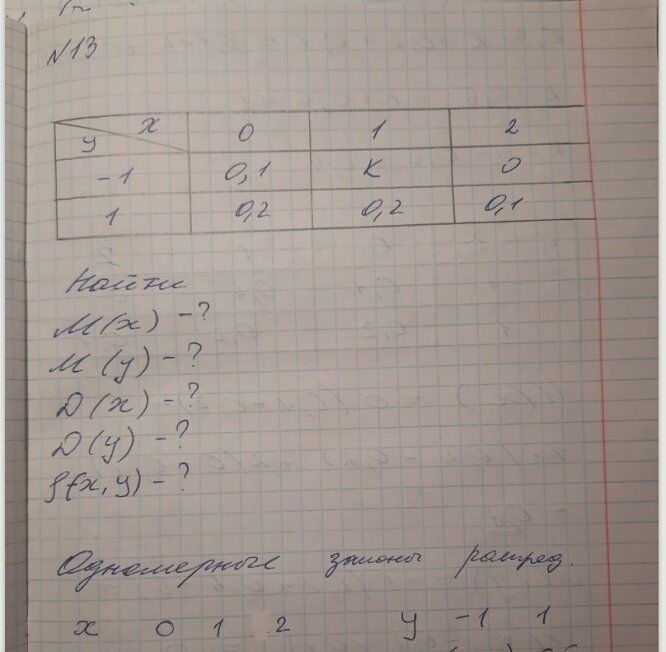 №13
x 0 1 2
y
-1 0,1 K 0
1 0,2 0,2 0,1
Найти
M(x) -?
M(y) -?
D(x) -?
D(y) -?
ρ(x,y) -?
Одномерные законы распред.
x 0 1 2 y -1 1